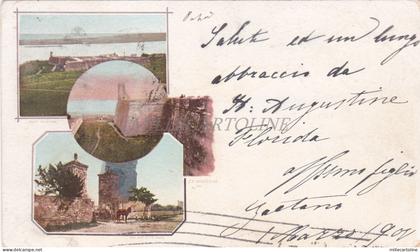 Saluti ed un lungo
abbraccio da
St. Augustine
Florida
affmo figlio
Gaetano
Marzo 1901